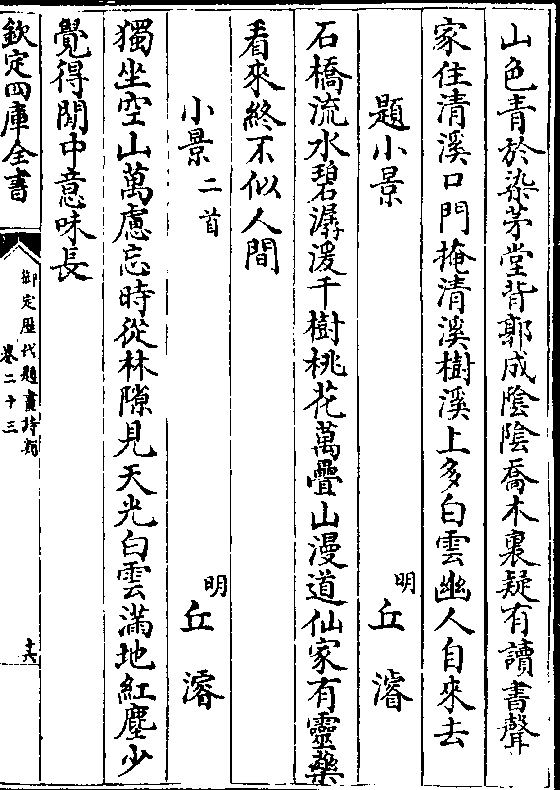 山色青於染茅堂背郭成陰陰喬木裏疑有讀書聲
家住清溪口門掩清溪樹溪上多白雲幽人自來去
題小景 明 丘濬
石橋流水碧潺湲千樹桃花萬疊山漫道仙家有靈藥
看來終不似人間
小景二首 明 丘濬
獨坐空山萬慮忘時從林隙見天光白雲滿地紅塵少
覺得閒中意味長
欽定四庫全書
御定歷代題畫詩類
卷二十三
十六